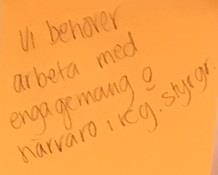 Vi behöver
arbeta med
engagemang o
närvaro i reg. styrgr.